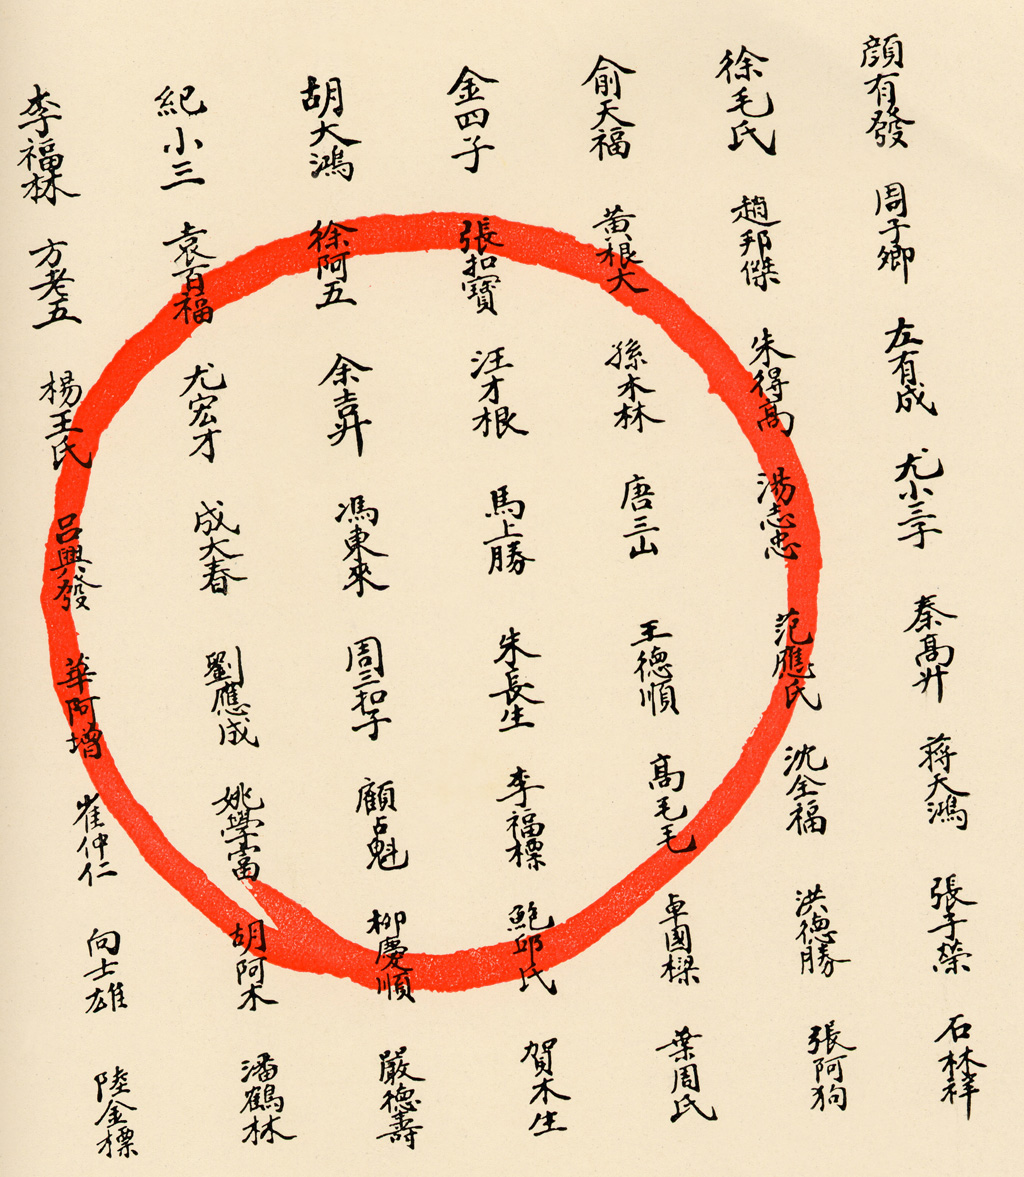 顏有發 周子卿 左有成 尤小三子 秦高升 蔣天鴻 張子榮 石林祥
徐毛氏 趙邦傑 朱得高 湯志忠 范應氏 沈全福 洪德勝 張阿狗
俞天福 黃根大 孫木林 唐三山 王德順 高毛毛 卓國樑 葉周氏
金四子 張扣寶 汪才根 馬上勝 朱長生 李福標 鮑邱氏 賀木生
胡大鴻 徐阿五 余吉升 馮東來 周三扣子 顧占魁 柳慶順 嚴德壽
紀小三 袁百福 尤宏才 成大春 劉應成 姚學富 胡阿木 潘鶴林
李福林 方老五 楊王氏 呂興發 華阿增 崔仲仁 向士雄 陸金標